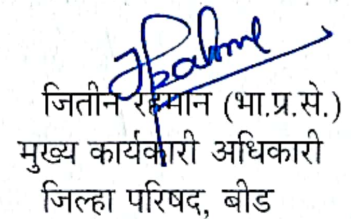 जितीन रहमान (भा.प्र.से.)
मुख्य कार्यकारी अधिकारी
जिल्हा परिषद, बीड